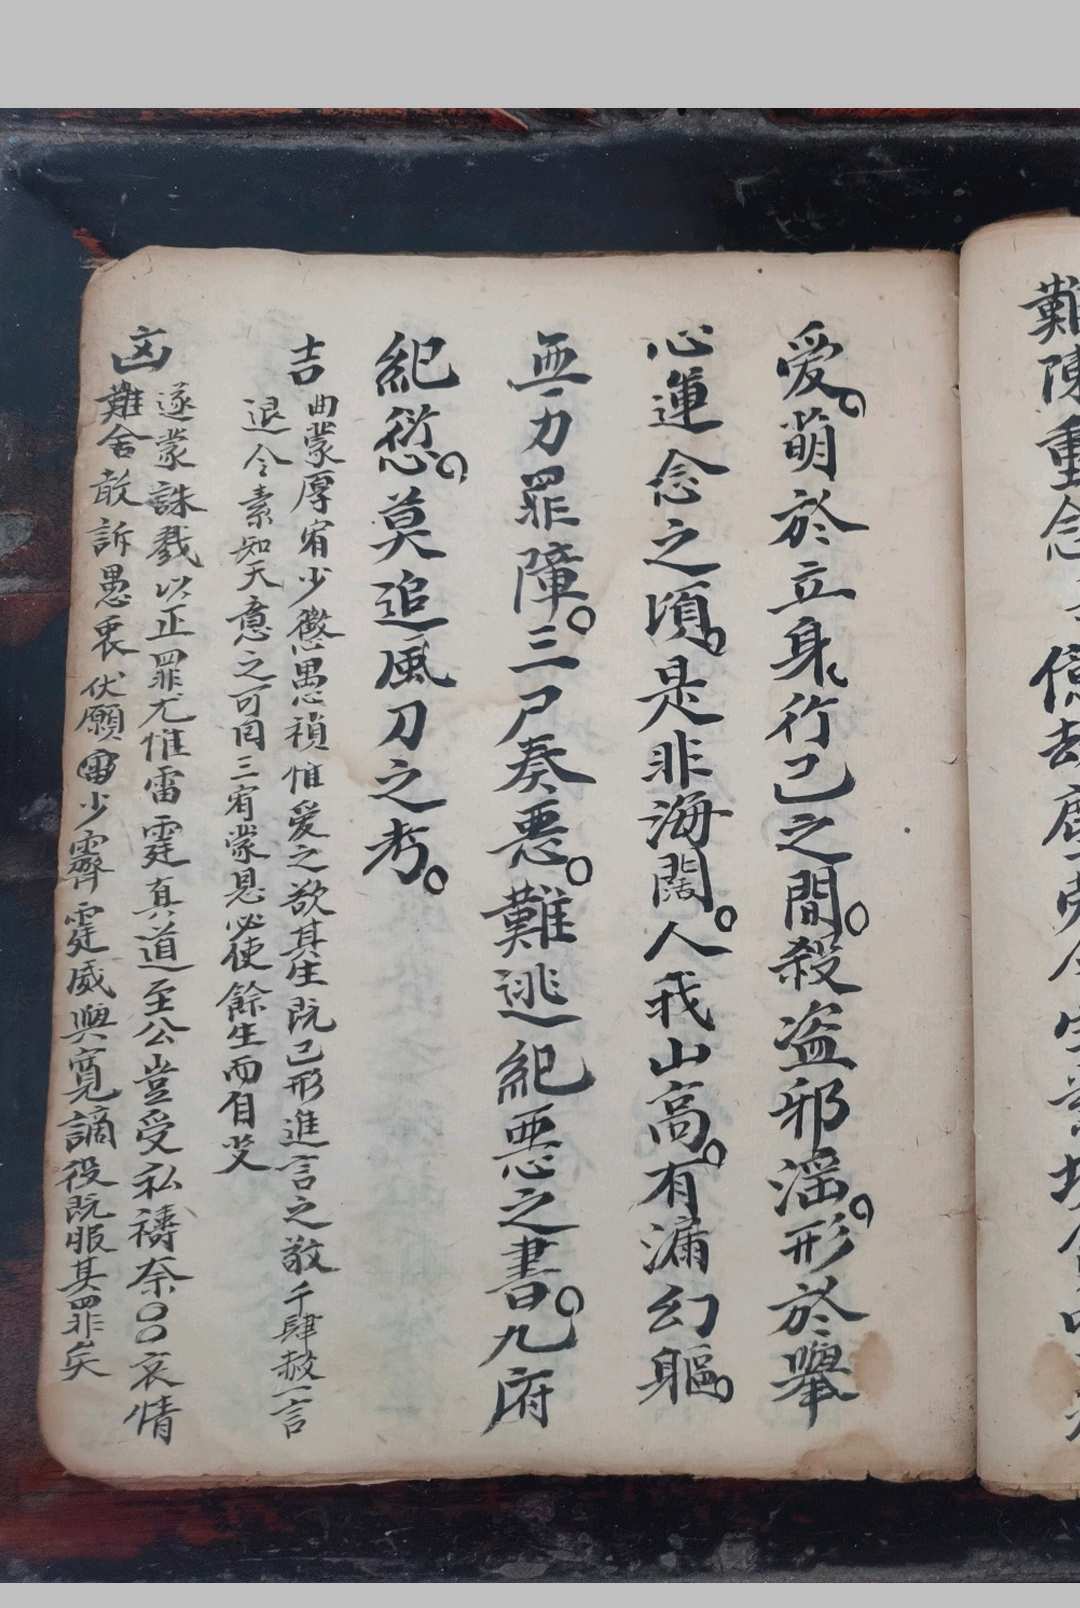 難陳重念
億劫塵
爱。萌於立身行己之間。殺盗邪淫。形於舉
心運念之頃。是非海闊。人我山高。有漏幻軀。
無力罪障。三尸奏悪。難逃紀悪之書。九府
紀愆。莫追風刀之考。
吉 曲蒙厚宥少懲愚禎惟爱之欲其生既已形進言之敬千肆赦一言
退令素知天意之可回三宥蒙恩必使餘生而自艾
凶 遂蒙誅戮以正罪尤惟雷霆真道至公豈受私禱奈〇〇哀情
難舍敢訴愚衷伏願雷少霽霆威興寛謫役既服其罪矣